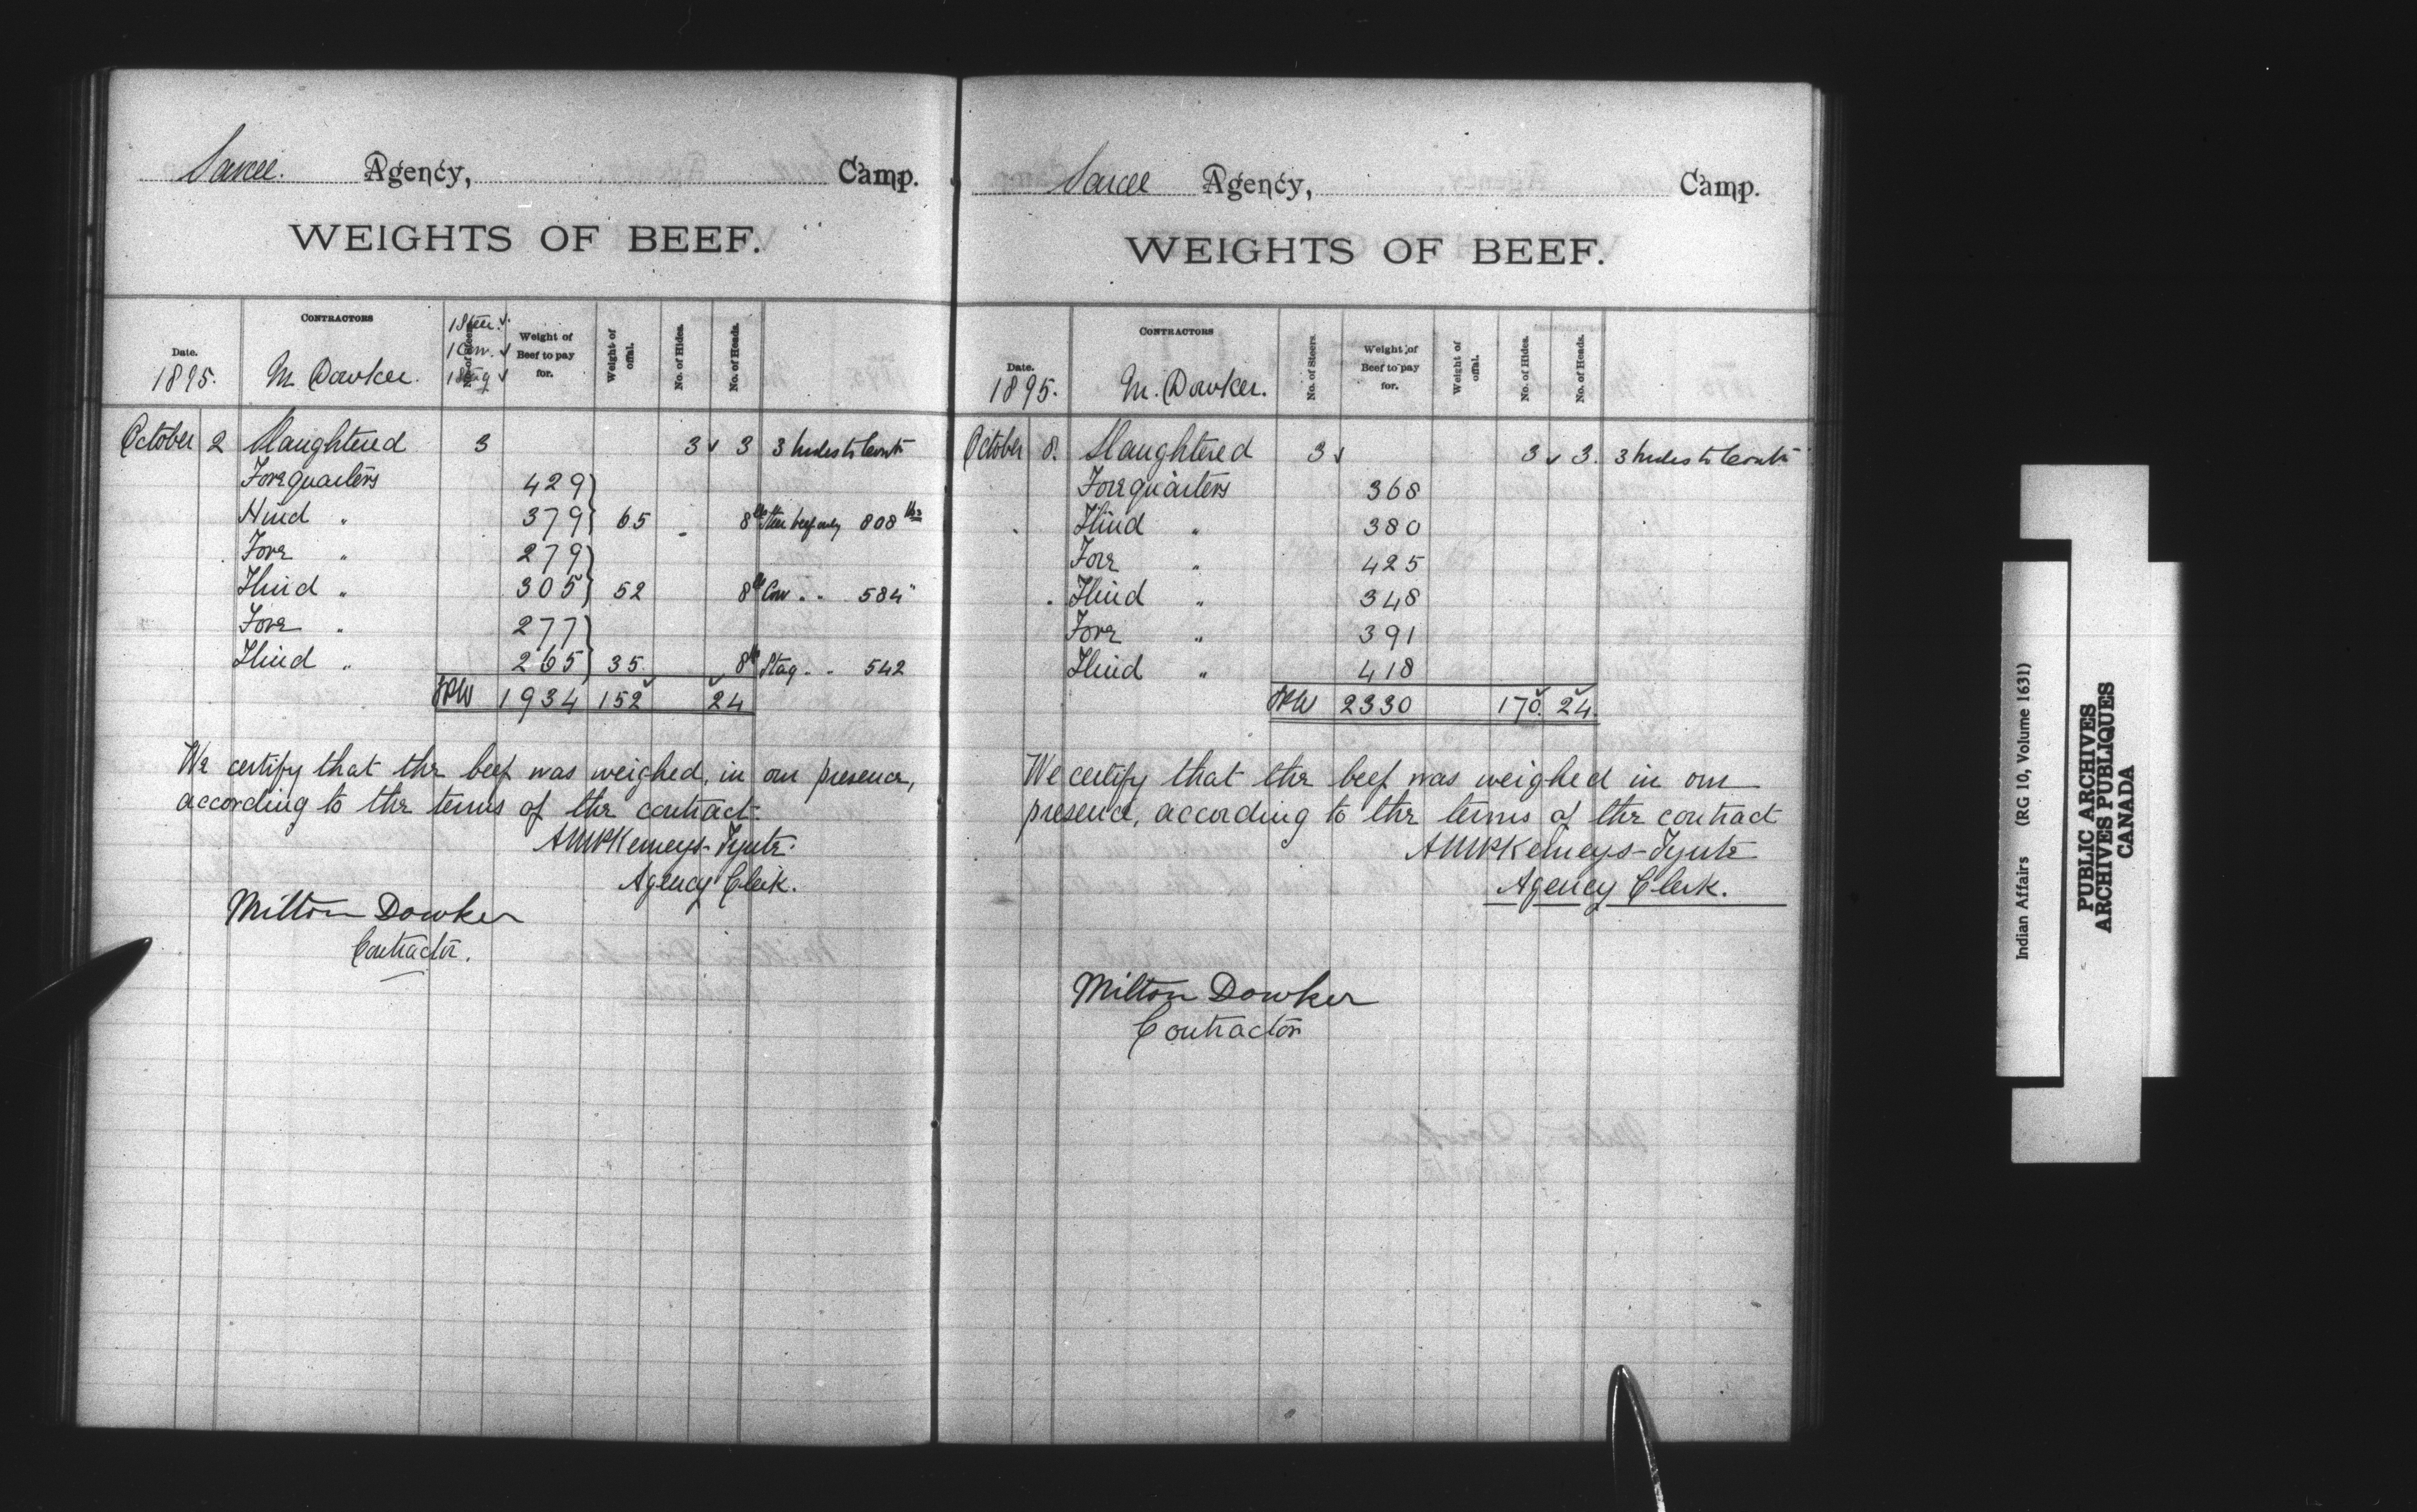 Sarcee. Agency, Camp.
WEIGHTS OF BEEF.
Date. CONTRACTORS No. of Steers. Weight of Beef to pay for. Weight of offal. No. of Hides. No. of Heads.
1 Steer. ✓
1 Cow. ✓
1 Stag ✓
1895. M. Dowker.
October 2 Slaughtered 3 3 ✓ 3 3 hides to Contr
Forequarters 429
Hind " 379 65 8 lbs Steer beef only 808 lbs
Fore " 279
Hind " 305 52 8 lbs Cow " " 584 "
Fore " 277
Hind " 265 35. 8 lbs Stag " " 542
1934 152 24
We certify that the beef was weighed, in our presence,
according to the terms of the contract.
Kemeys-Tynte.
Agency Clerk.
Milton Dowker
Contractor.
Sarcee Agency, Camp.
WEIGHTS OF BEEF.
Date. CONTRACTORS No. of Steers. Weight of Beef to pay for. Weight of offal. No. of Hides. No. of Heads.
1895. M. Dowker.
October 8. Slaughtered 3 ✓ 3 ✓ 3. 3 hides to Contr
Forequarters 368
Hind " 380
Fore " 425
Hind " 348
Fore " 391
Hind " 418
2330 170. 24.
We certify that the beef was weighed in our
presence, according to the terms of the contract
Kemeys-Tynte
Agency Clerk.
Milton Dowker
Contractor
Indian Affairs (RG 10, Volume 1631)
PUBLIC ARCHIVES
ARCHIVES PUBLIQUES
CANADA